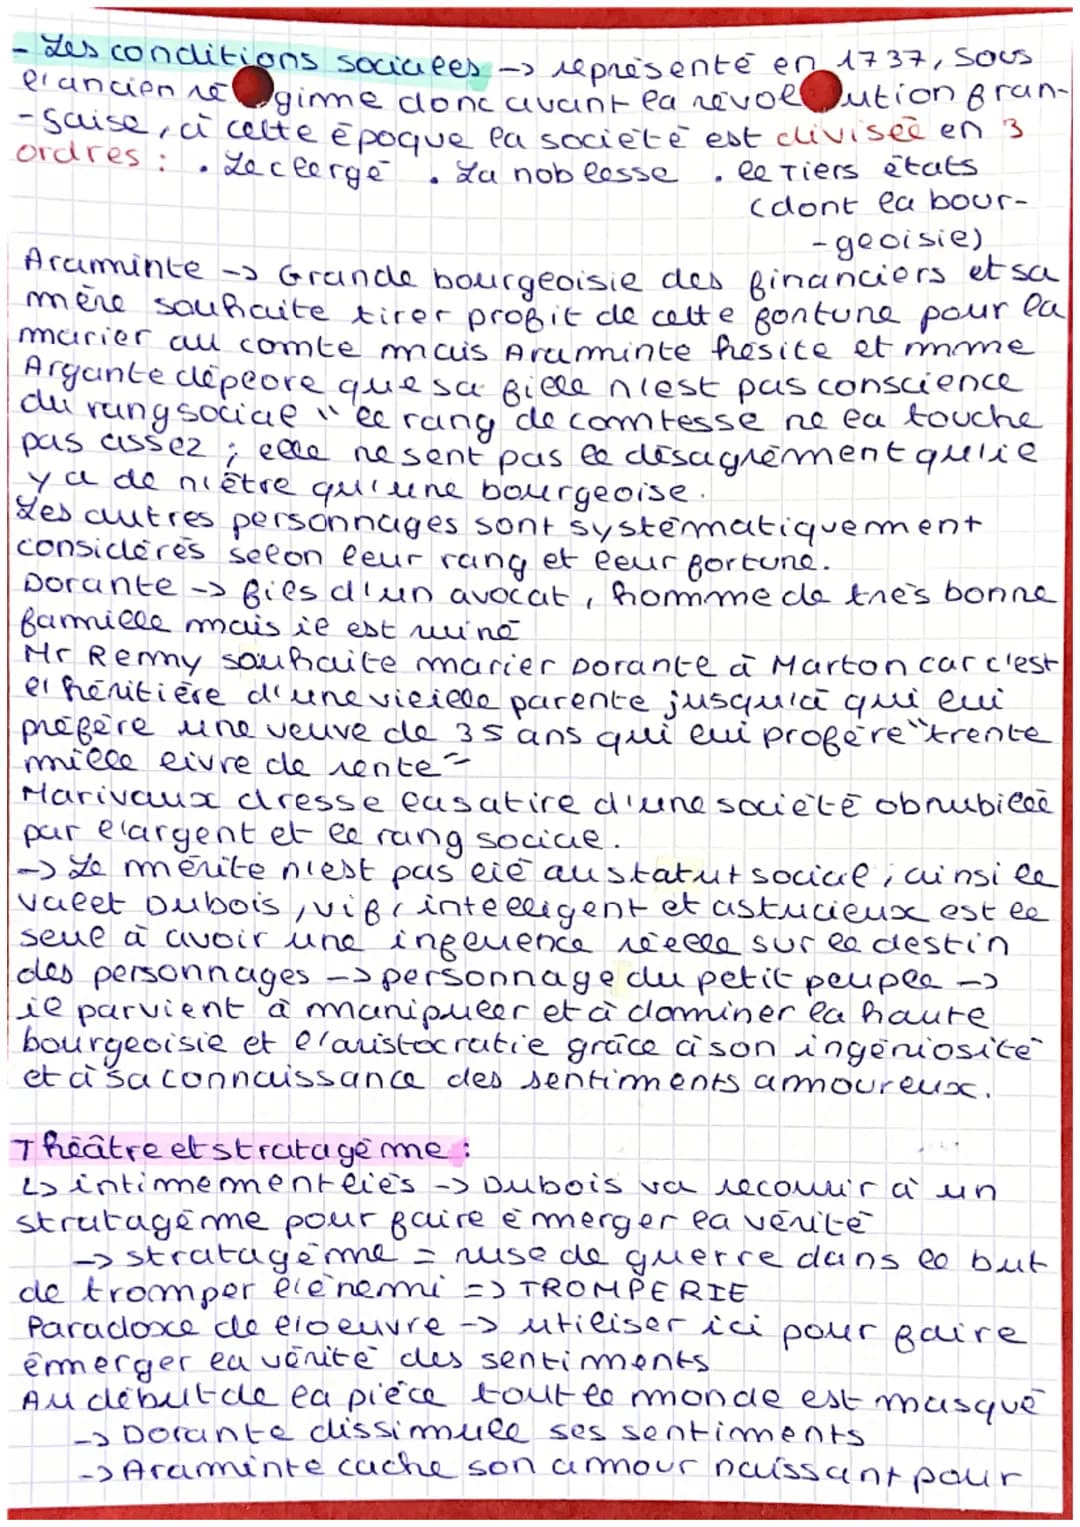 - Les conditions sociales -> représenté en 1737, sous
l'ancien régime donc avant la révolution fran-
-saise, à cette époque la société est divisée en 3
ordres : . Le clergé . La noblesse . le Tiers états
(dont la bour-
-geoisie)
Araminte -> Grande bourgeoisie des financiers et sa
mère souhaite tirer profit de cette fontune pour la
marier au comte mais Araminte hésite et mme
Argante déplore que sa fille n'est pas conscience
du rang social " le rang de comtesse ne la touche
pas assez ; elle ne sent pas le désagrément qu'il
y a de n'être qu'une bourgeoise.
Les autres personnages sont systématiquement
considérés selon leur rang et leur fortune.
Dorante -> fils d'un avocat, homme de très bonne
famille mais il est ruiné
Mr Remy souhaite marier Dorante à Marton car c'est
l'héritière d'une vieille parente jusqu'à qui lui
préfère une veuve de 35 ans qui lui profère "trente
mille livre de rente"
Marivaux dresse la satire d'une société obnubilée
par l'argent et le rang social.
-> Le mérite n'est pas lié au statut social, ainsi le
valet Dubois, vif, intelligent et astucieux est le
seul à avoir une influence réelle sur le destin
des personnages -> personnage du petit peuple ->
il parvient à manipuler et à dominer la haute
bourgeoisie et l'aristocratie grâce à son ingéniosité
et à sa connaissance des sentiments amoureux.
Théâtre et stratagème :
↳ intimement liés -> Dubois va recourir à un
stratagème pour faire émerger la vérité
-> stratagème = ruse de guerre dans le but
de tromper l'énemi => TROMPERIE
Paradoxe de l'oeuvre -> utiliser ici pour faire
émerger la vérité des sentiments
Au début de la pièce tout le monde est masqué
-> Dorante dissimule ses sentiments
-> Araminte cache son amour naissant pour